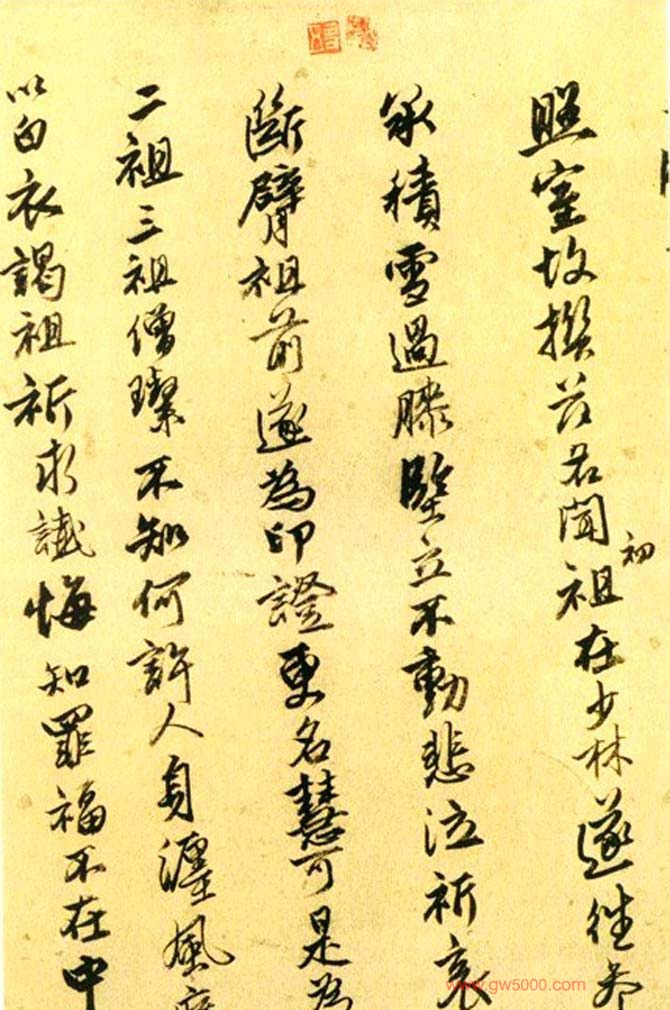 照室故撰茲名聞初祖在少林遂往參
承積雪過膝堅立不動悲泣祈哀
斷臂祖前遂為印證更名慧可是為
二祖三祖僧璨不知何許人身纏風
以白衣謁祖祈求懺悔知罪福不在中
www.gw5000.com